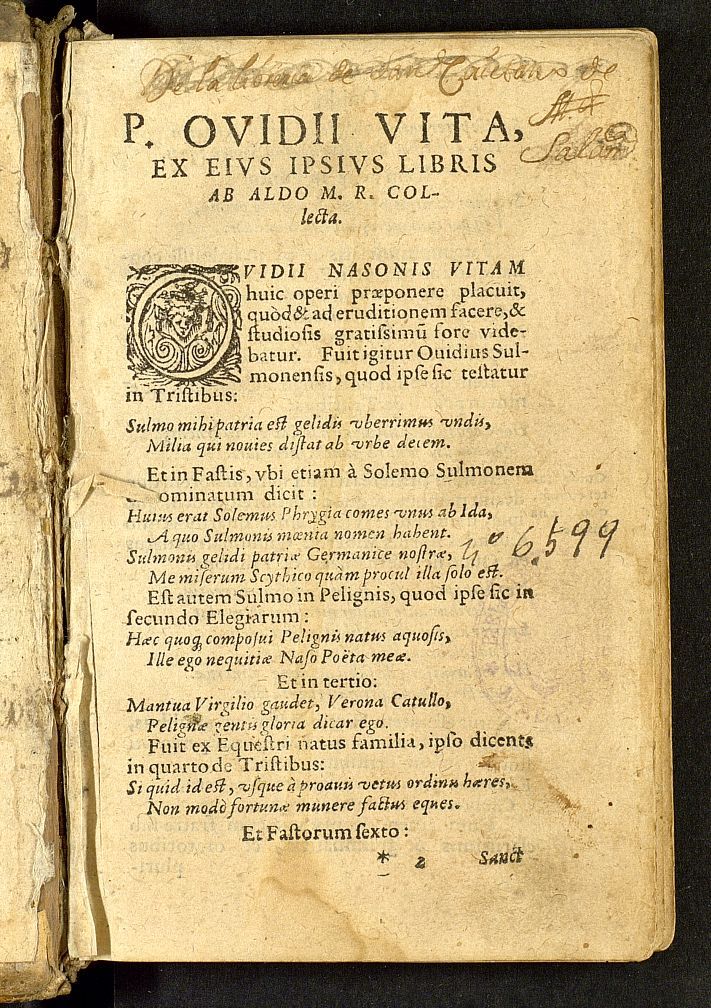 De la libreria de San Caletano de
Salam
P. OVIDII VITA,
EX EIVS IPSIVS LIBRIS
AB ALDO M. R. COL-
lecta.
OVIDII NASONIS VITAM
huic operi præponere placuit,
quòd & ad eruditionem facere, &
ſtudioſis gratiſsimũ fore vide-
batur. Fuit igitur Ouidius Sul-
monenſis, quod ipſe ſic teſtatur
in Triſtibus:
Sulmo mihi patria eſt gelidis vberrimus vndis,
Milia qui nouies diſtat ab vrbe decem.
Et in Faſtis, vbi etiam à Solemo Sulmonem
ominatum dicit :
Huius erat Solemus Phrygia comes vnus ab Ida,
A quo Sulmonis mœnia nomen habent.
Sulmonis gelidi patriæ Germanice noſtræ,
4º 6.599
Me miſerum Scythico quàm procul illa ſolo eſt.
Eſt autem Sulmo in Pelignis, quod ipſe ſic in
ſecundo Elegiarum :
Hæc quoq; compoſui Pelignis natus aquoſis,
Ille ego nequitiæ Naſo Poëta meæ.
Et in tertio:
Mantua Virgilio gaudet, Verona Catullo,
Pelignæ gentis gloria dicar ego.
Fuit ex Equeſtri natus familia, ipſo dicente
in quarto de Triſtibus:
Si quid id eſt, vſque à proauis vetus ordinis hæres,
Non modò fortunæ munere factus eques.
Et Faſtorum ſexto :
* 2 Sanct